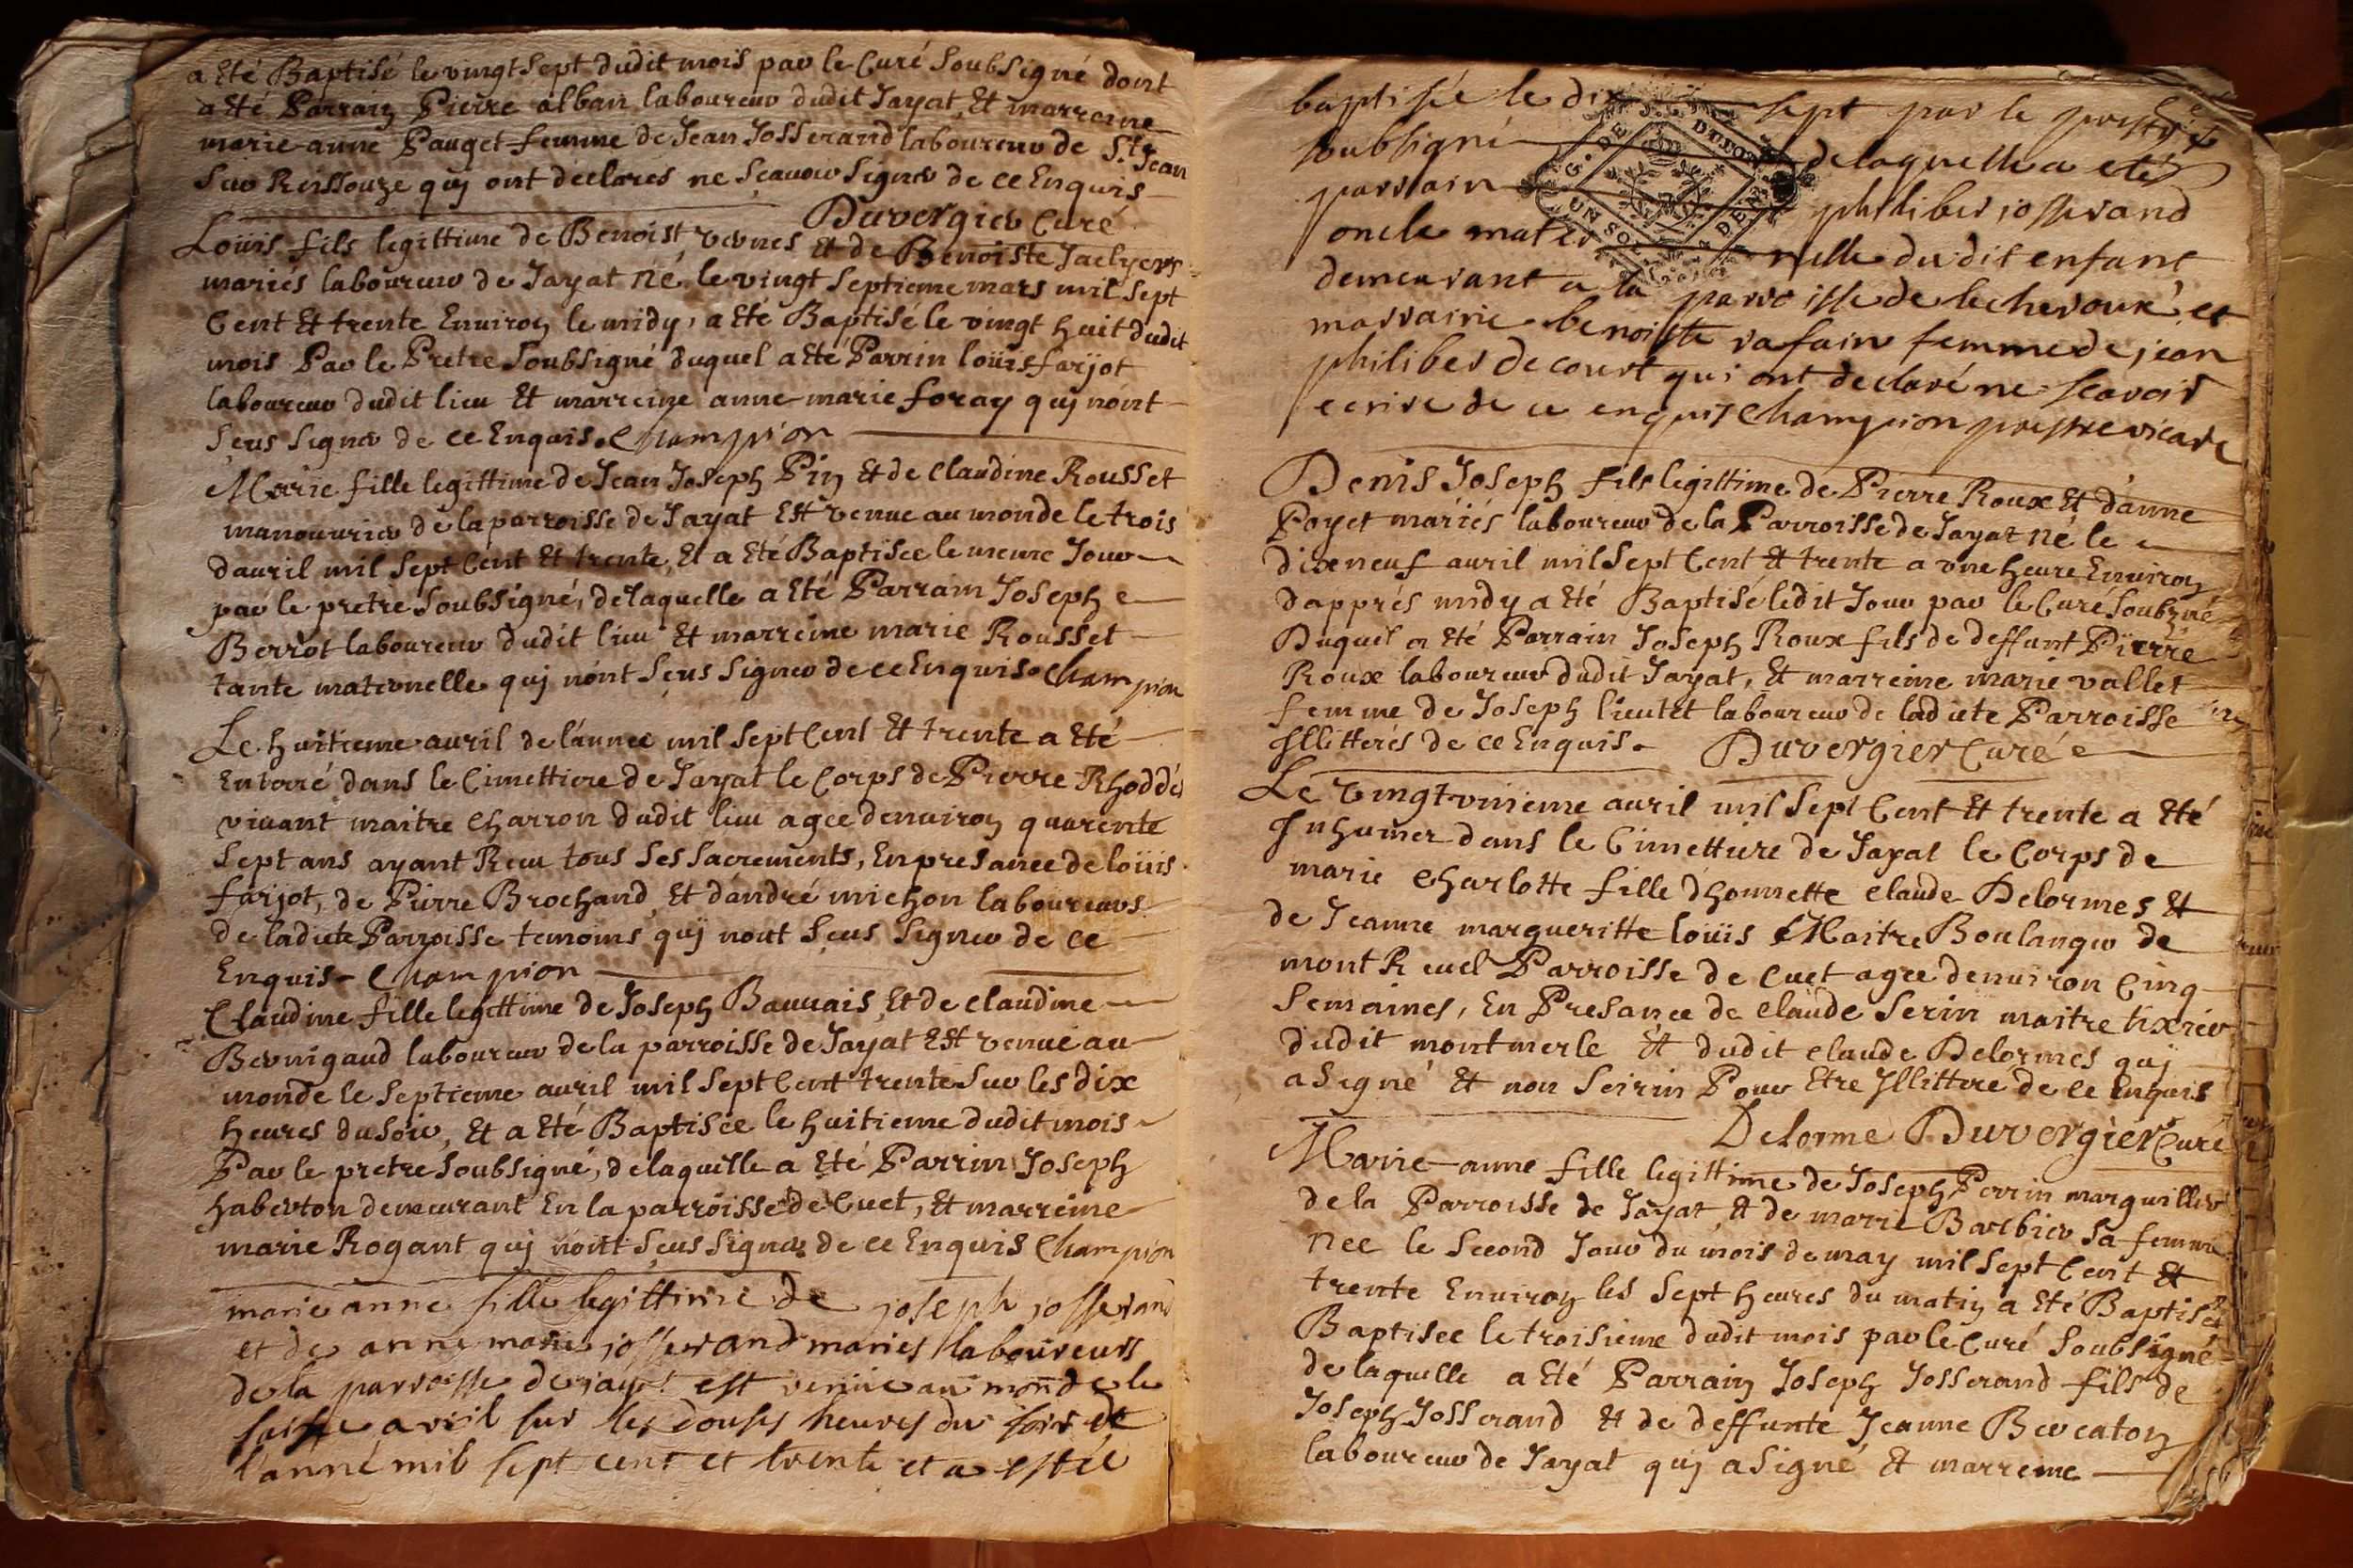 a Eté Baptisé le vingt Sept dudit mois par le Curé Soubsigné dont
a Eté Parrain Pierre alban laboureur dudit Jayat, Et marreine
marie anne Pauget femme de Jean Josserand laboureur de St. Jean
Sur Reissouze quj ont déclarés ne Scavoir Signer de ce Enquis
Duvergier Curé
Loüis fils legittime de Benoist vernes Et de Benoiste
mariés laboureur de Jayat né le vingt Septieme mars mil Sept
Cent Et trente Enuiron le midy, a Eté Baptisé le vingt huit dudit
mois Par le Pretre Soubsigné duquel a Eté Parrin loüis farjot
laboureur dudit lieu Et marreine anne marie foray quj nont
Sçus Signer de ce Enquis. Champion
Marie fille legittime de Jean Joseph Pin Et de Claudine Rousset
manouurier de la parroisse de Jayat Est venue au monde le trois
dauril mil Sept Cent Et trente, Et a Eté Baptisee le meme Jour
par le pretre Soubsigné, de laquelle a Eté Parrain Joseph
Berrot laboureur dudit lieu Et marreine marie Rousset
tante maternelle quj nont Sçus Signer de ce Enquis. Champion
Le huitieme auril de l'annee mil Sept Cent Et trente a Eté
Enterré dans le Cimettiere de Jayat le Corps de Pierre
viuant maitre Charron dudit lieu agee denuiron quarente
Sept ans ayant Receu tous Ses Sacrements, En presance de loüis
farjot, de Pierre Brochand, Et dandré michon laboureurs
de ladite Parroisse temoins quj nont Sçus Signer de ce
Enquis. Champion
Claudine fille legittime de Joseph Bauuais, Et de Claudine
Bernigaud laboureur de la parroisse de Jayat Est venue au
monde le Septieme auril mil Sept Cent trente Sur les dix
heures du Soir, Et a Eté Baptisee le huitieme dudit mois
Par le pretre Soubsigné, de laquelle a Eté Parrin Joseph
haberton demeurant En la parroisse de Cuet, Et marreine
marie Rogant quj nont Sçus Signer de ce Enquis Champion
marie anne fille legittime de joseph josserand
et de anne marie josserand maries laboureurs
de la parroisse de jayat est venue au monde le
saise avril sur les douses heures du soir de
l'anné mil sept cent et trente et a estée
baptisée le dix sept par le prestre
soubsigné de laquelle a eté
parrain philiber josserand
oncle maternelle dudit enfant
demeurant a la parroisse de lecheroux et
marraine benoiste rafain femme de jean
philiber decourt qui ont declaré ne scavoir
ecrire de ce enquis Champion prestre vicaire
G. DE
UN SOL
Denis Joseph fils legittime de Pierre Roux Et d'anne
Poyet mariés laboureur de la Parroisse de Jayat né le
dixneuf auril mil Sept Cent Et trente a vne heure Enuiron
dapprés midy a Eté Baptisé ledit Jour par le Curé
Duquel a Eté Parrain Joseph Roux fils de deffunt Pierre
Roux laboureur dudit Jayat, Et marreine marie vallet
femme de Joseph lieutet laboureur de ladite Parroisse
Jllitterés de ce Enquis. Duvergier Curé
Le vingt vnieme auril mil Sept Cent Et trente a Eté
Jnhumer dans le Cimettiere de Jayat le Corps de
marie Charlotte fille d'honnette Claude Delormes Et
de Jeanne margueritte loüis Maitre Boulanger de
mont Reuel Parroisse de Cuet agee denuiron Cinq
Semaines, En Presance de Claude Serin maitre tixier
dudit montmerle Et dudit Claude Delormes quj
a Signé Et non Seirin Pour Etre Jllittere de ce Enquis
Delorme Duvergier Curé
Marie anne fille legittime de Joseph Perrin marguillier
de la Parroisse de Jayat, Et de marie Barbier Sa femme
née le Second Jour du mois de may mil Sept Cent Et
trente Enuiron les Sept heures du matin a Eté Baptisée
Baptisee le troisieme dudit mois par le Curé Soubsigné
de laquelle a Eté Parrain Joseph Josserand fils de
Joseph Josserand Et de deffunte Jeanne
laboureur de Jayat quj a Signé Et marreine